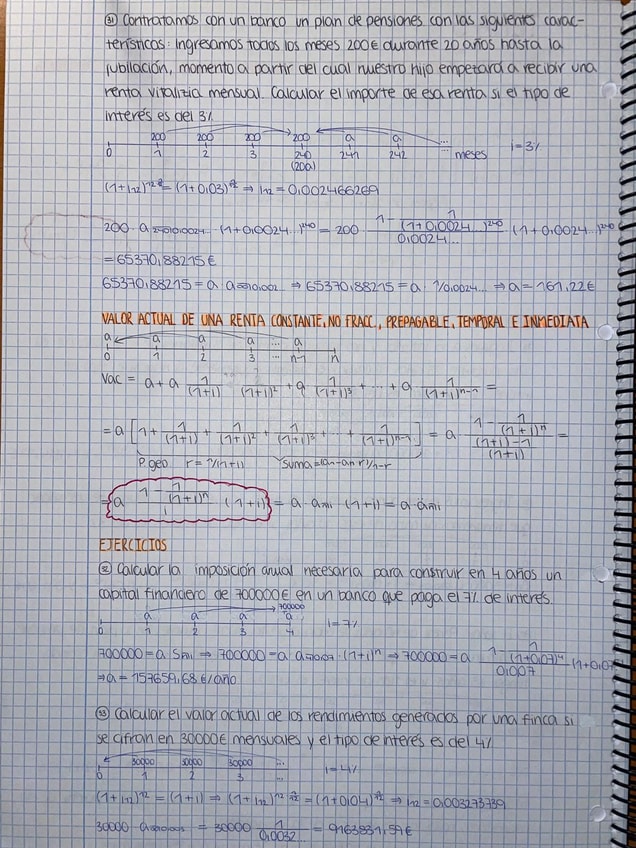 31 Contratamos con un banco un plan de pensiones con las siguientes carac-
terísticas: Ingresamos todos los meses 200€ durante 20 años hasta la
jubilación, momento a partir del cual nuestro hijo empezará a recibir una
renta vitalizia mensual. Calcular el importe de esa renta si el tipo de
interés es del 3%
200 200 200 200 a a ...
0 1 2 3 240 241 242 ... meses i=3%
(20a)
(1+i12)^12 = (1+0,03) ⇒ i12=0,002466269
200 · a 240 0,0024... · (1+0,0024...)^240 = 200 · (1 - 1/(1+0,0024...)^240)/0,0024... · (1+0,0024...)^240
= 65370,88215€
65370,88215 = a · a∞ 0,002... ⇒ 65370,88215 = a · 1/0,0024... ⇒ a = 161,22€
VALOR ACTUAL DE UNA RENTA CONSTANTE, NO FRACC., PREPAGABLE, TEMPORAL E INMEDIATA
a a a a ... a
0 1 2 3 ... n-1 n
Vac = a + a 1/(1+i) 1/(1+i)^2 + a 1/(1+i)^3 + ... + a 1/(1+i)^n-1 =
= a [1 + 1/(1+i) + 1/(1+i)^2 + 1/(1+i)^3 + ... + 1/(1+i)^n-1] = a · (1 - 1/(1+i)^n)/(((1+i)-1)/(1+i)) =
P. geo r = 1/(1+i) suma = (a1-an r)/1-r
= a (1 - 1/(1+i)^n)/i · (1+i) = a · a n i · (1+i) = a · ä n i
EJERCICIOS
Calcular la imposición anual necesaria para construir en 4 años un
capital financiero de 700000€ en un banco que paga el 7% de interés.
700000
a a a a
0 1 2 3 4 i=7%
700000 = a S n i ⇒ 700000 = a a 0,07 · (1+i)^n ⇒ 700000 = a (1 - 1/(1+0,07)^4)/0,007 · (1+0,07
⇒ a = 157659,68€/año
33 Calcular el valor actual de los rendimientos generados por una finca si
se cifran en 30000€ mensuales y el tipo de interés es del 4%
30000 30000 30000 ...
0 1 2 3 ... i=4%
(1+i12)^12 = (1+i) ⇒ (1+i12)^12 = (1+0,04) ⇒ i12 = 0,003273739
30000 · a∞ 0,003 = 30000 1/0,0032... = 9163831,59€